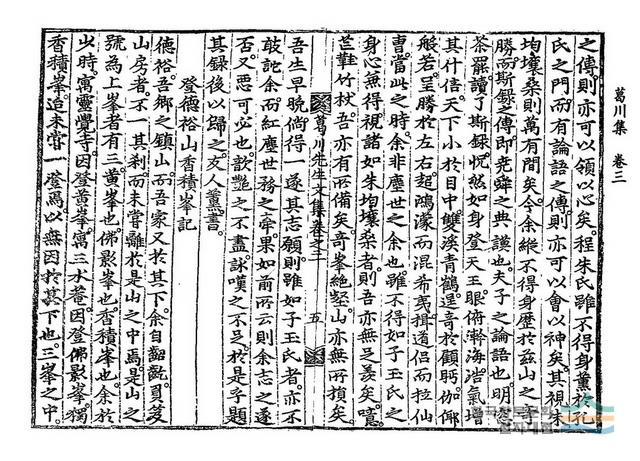 葛川集 卷三
之傳則亦可以領以心矣程朱氏雖不得身薰於孔
氏之門而有論語之傳則亦可以會以神矣其視朱
均壤桑則萬有間矣今余縱不得身歷於玆山之奇
勝而斯錄之傳即堯舜之典謨也夫子之論語也明窓
茶罷讀了斯錄怳然如身登天王眼俯瀚海浩氣增
其什倍天下小於目中雙溪青鶴逞奇於顧眄伽倻
般若呈勝於左右超鴻濛而混希夷揖道侶而拉仙
曺當此之時余非塵世之余也雖不得如子王氏之
身心兼得視諸如朱均壤桑者則吾亦無之羨矣噫
芒鞋竹杖吾亦有所備矣奇峯絶壑山亦無所損矣
葛川先生文集卷之三 五
吾生早晩倘得一遂其志願則雖如子王氏者亦不
敢詑余而紅塵世務之牽果如前所云則余志之遂
否又忍可必也歆艶之不盡詠嘆之不足於是乎題
其錄後以歸之友人蘁書
登德裕山香積峯記
德裕吾鄕之鎭山而吾家又於其下余自齠齔負笈
山房者不一其刹而未嘗離於是山之中焉是山之
號爲上峯者有三黃峯也佛影峯也香積峯也余於
少時寓靈覺寺因登黃峯寓三水菴因登佛影峯獨
香積峯迨未嘗一登焉以無因於其下也三峯之中